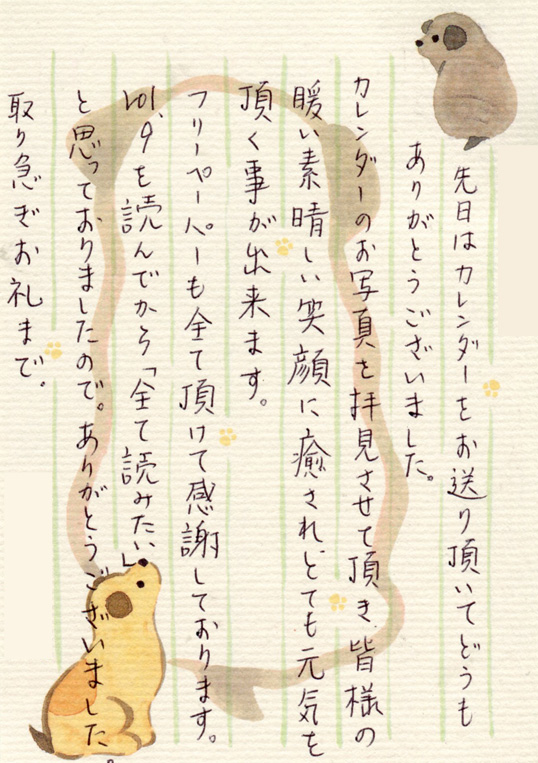 先日はカレンダーをお送り頂いてどうも
ありがとうございました。
カレンダーのお写真を拝見させて頂き、皆様の
暖い素晴しい笑顔に癒され、とても元気を
頂く事が出来ます。
フリーペーパーも全て頂けて感謝しております。
vol.9を読んでから「全て読みたい」
と思っておりましたので。ありがとうございました。
取り急ぎお礼まで。